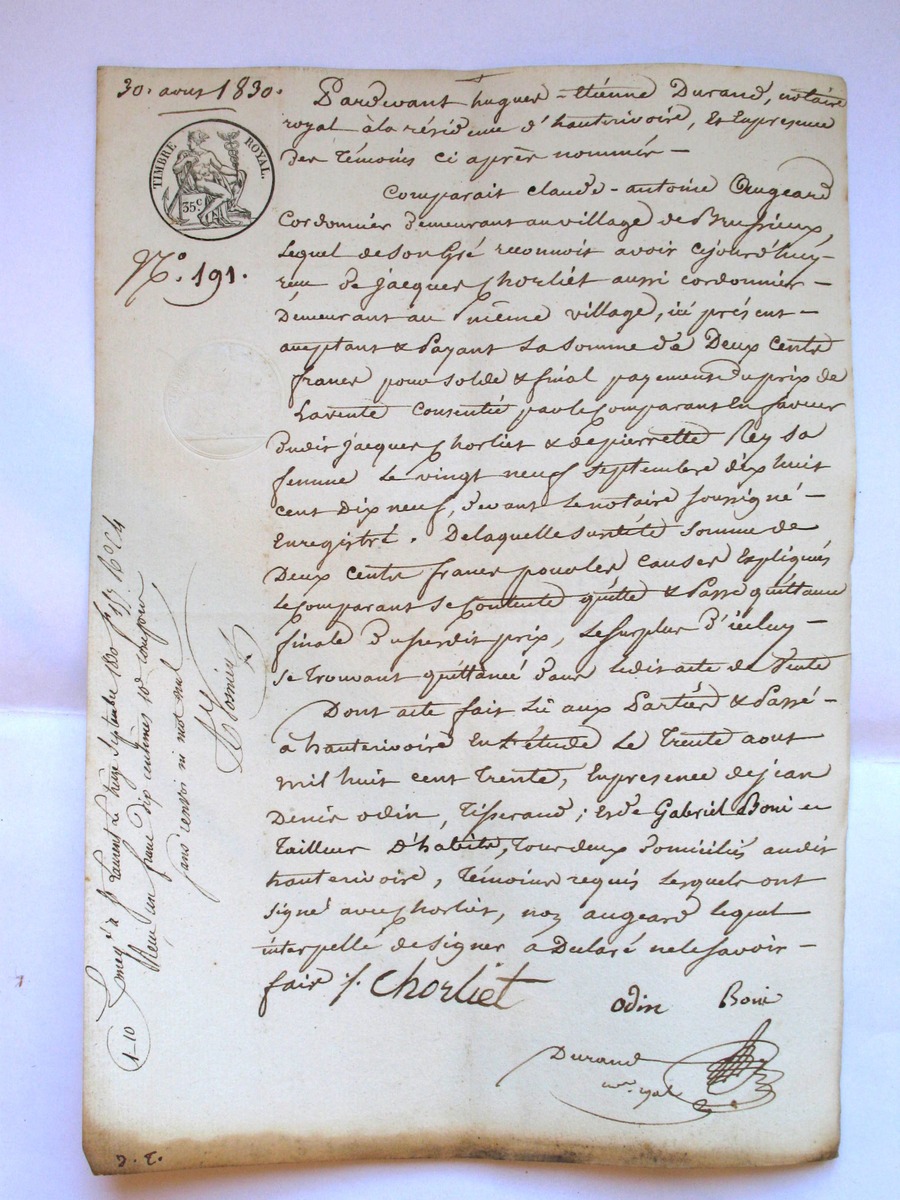 30. aout 1830.
TIMBRE ROYAL.
35 c
N.o 191.
Pardevant hugues-étienne Durand, notaire
royal à la résidence d'hauterivoire, et En presence
des témoins ci après nommés -
Comparait claude-antoine Augeard
Cordonnier demeurant au village de Brussieux,
Lequel de son Gré reconnoit avoir cejourd'huy
recu de jacques Chorliet aussi cordonnier -
Demeurant au même village, ici présent -
acceptant & Payant La Somme de Deux Cents
francs pour solde & final payement du prix de
La vente Consentie par le Comparant En faveur
Dudit jacques Chorliet & de pierrette Rey sa
femme Le vingt neuf septembre dix huit
cent Dix neuf, devant Le notaire soussigné -
Enregistré. De laquelle susdite Somme de
Deux cents francs pour les causes Expliquées
Le Comparant se Contente quitte & Passe quittance
finale du susdit prix, Le surplus d'iceluy -
se trouvant quittancé dans Ledit acte de Vente
Dont acte fait Lu aux Parties & Passé -
à hauterivoire En L'étude Le Trente aout
mil huit cent Trente, En presence de jean
Denis odin, Tisserand; Et de Gabriel Boni
Tailleur D'habits, Tous deux Domiciliés audit
hauterivoire, Témoins requis Lesquels ont
signé avec Chorliet, non augeard lequel
interpellé de signer a Declaré ne le savoir -
faire /. Chorliet
odin Boni
Durand
nre. royal
Enreg.é à St Laurent Le treize Septembre 1830 f.o 193 R.o C. 4
Reçu un franc dix centimes 10.e compris
sans renvoi ni mot nul
1-10